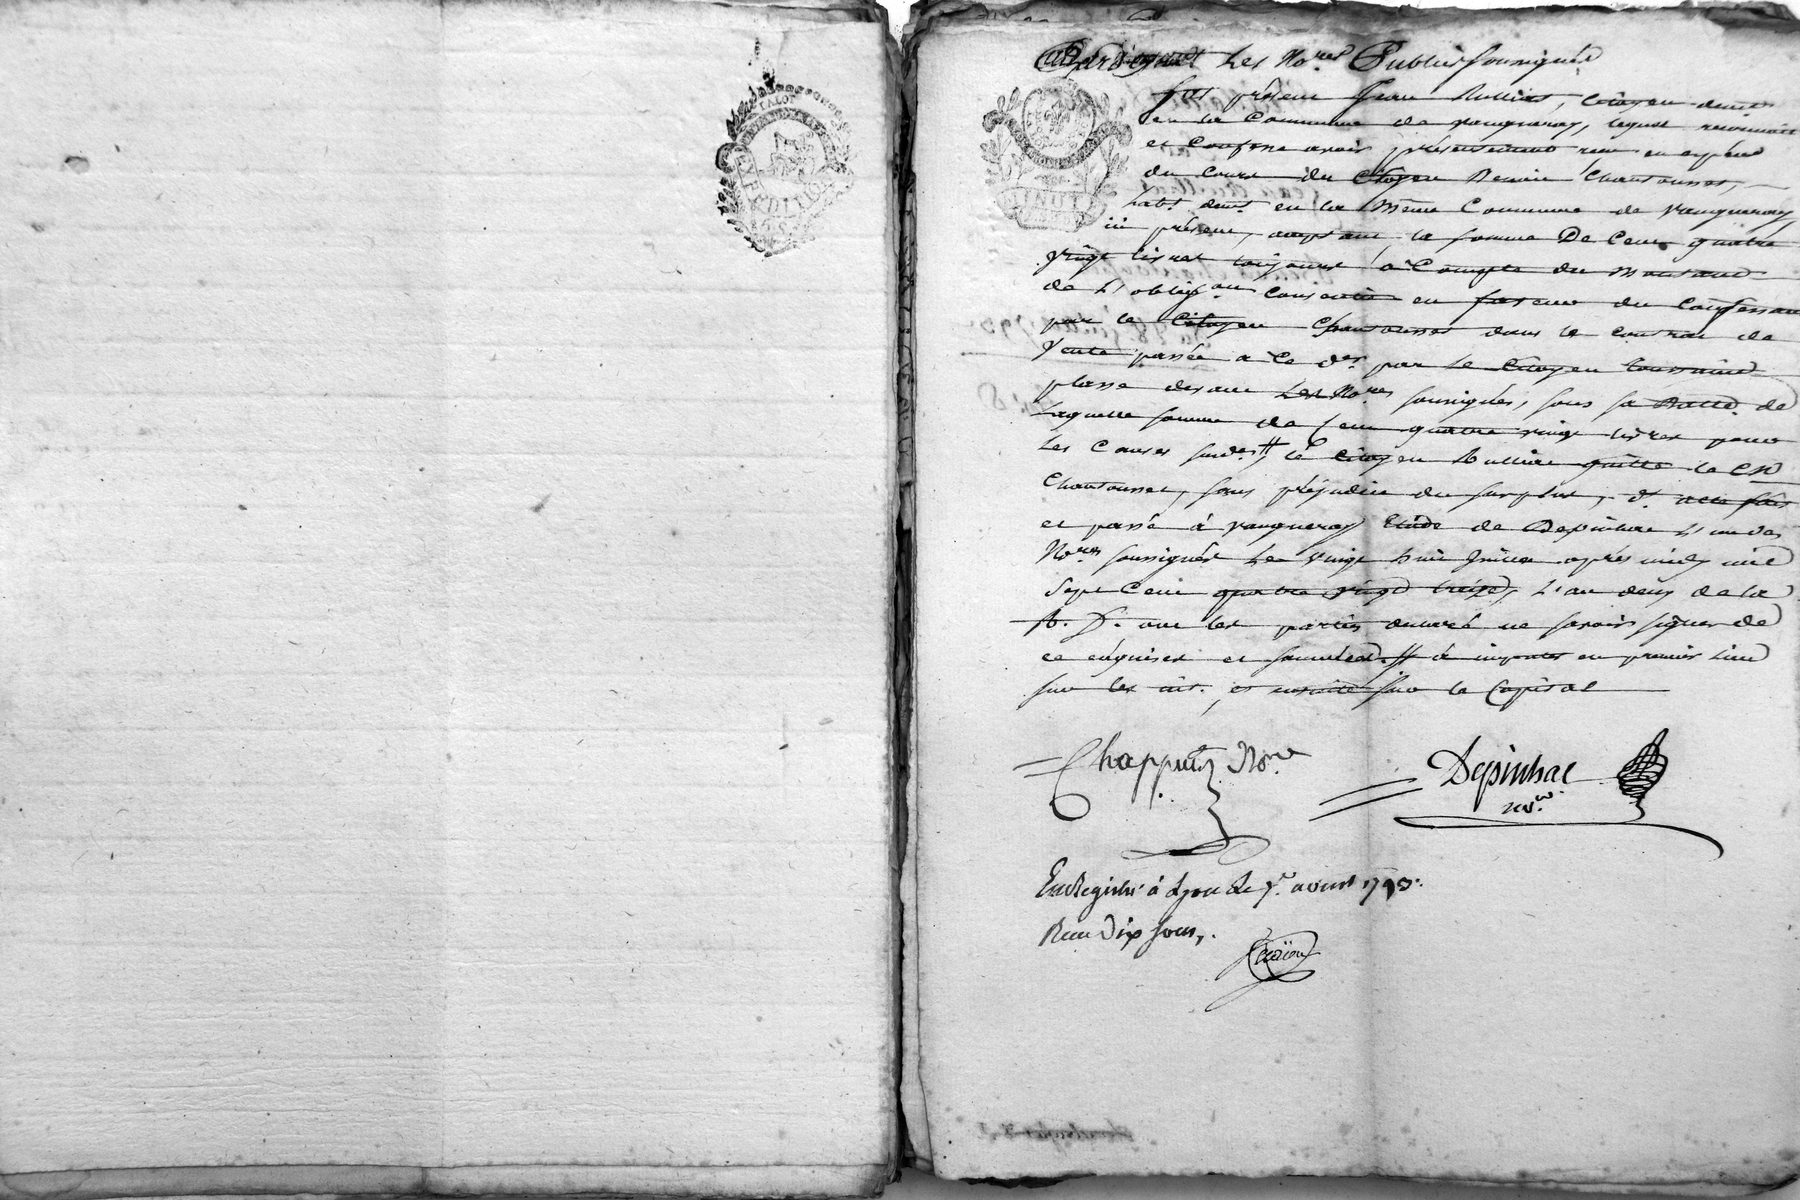 Pardevant Les No.res Publics soussignés
fut présent Jean Rullias, citoyen demt
en la Commune de vaugneray, lequel reconnoit
et Confesse avoir présentement reçu en espèces
du Cours du Citoyen Benoit Chantousset,
habt. demt en la même Commune de vaugneray,
ici présent, acceptant, la somme De Cent quatre
vingt livres toujours à Compte du Montant
de L'oblig.on Consentie en faveur du Confessant
par le Citoyen Chantousset dans le contrat de
Vente passée à Ce d.er par le Citoyen toussaint
plasse devant Les No.res soussignés, sous sa Datte. de
Laquelle somme de Cent quatre vingt livres pour
les Causes susd.es #, le Citoyen Rullias quitte le C.en
Chantousset, sans préjudice du surplus, d.t acte fait
et passé à vaugneray Etude de Depinhac L'un des
No.res soussignés Le vingt huit après midy mil
Sept Cent quatre vingt treize, L'an deux de la
R. f. avec les parties declaré ne savoir signer de
ce enquises et # à imputer en premier lieu
sur les int., et ensuite sur le Capital
Chappuis No.re
Depinhac
No.re
Enregistré à Lyon le aoust 1793.
Reçu Dix sous,.